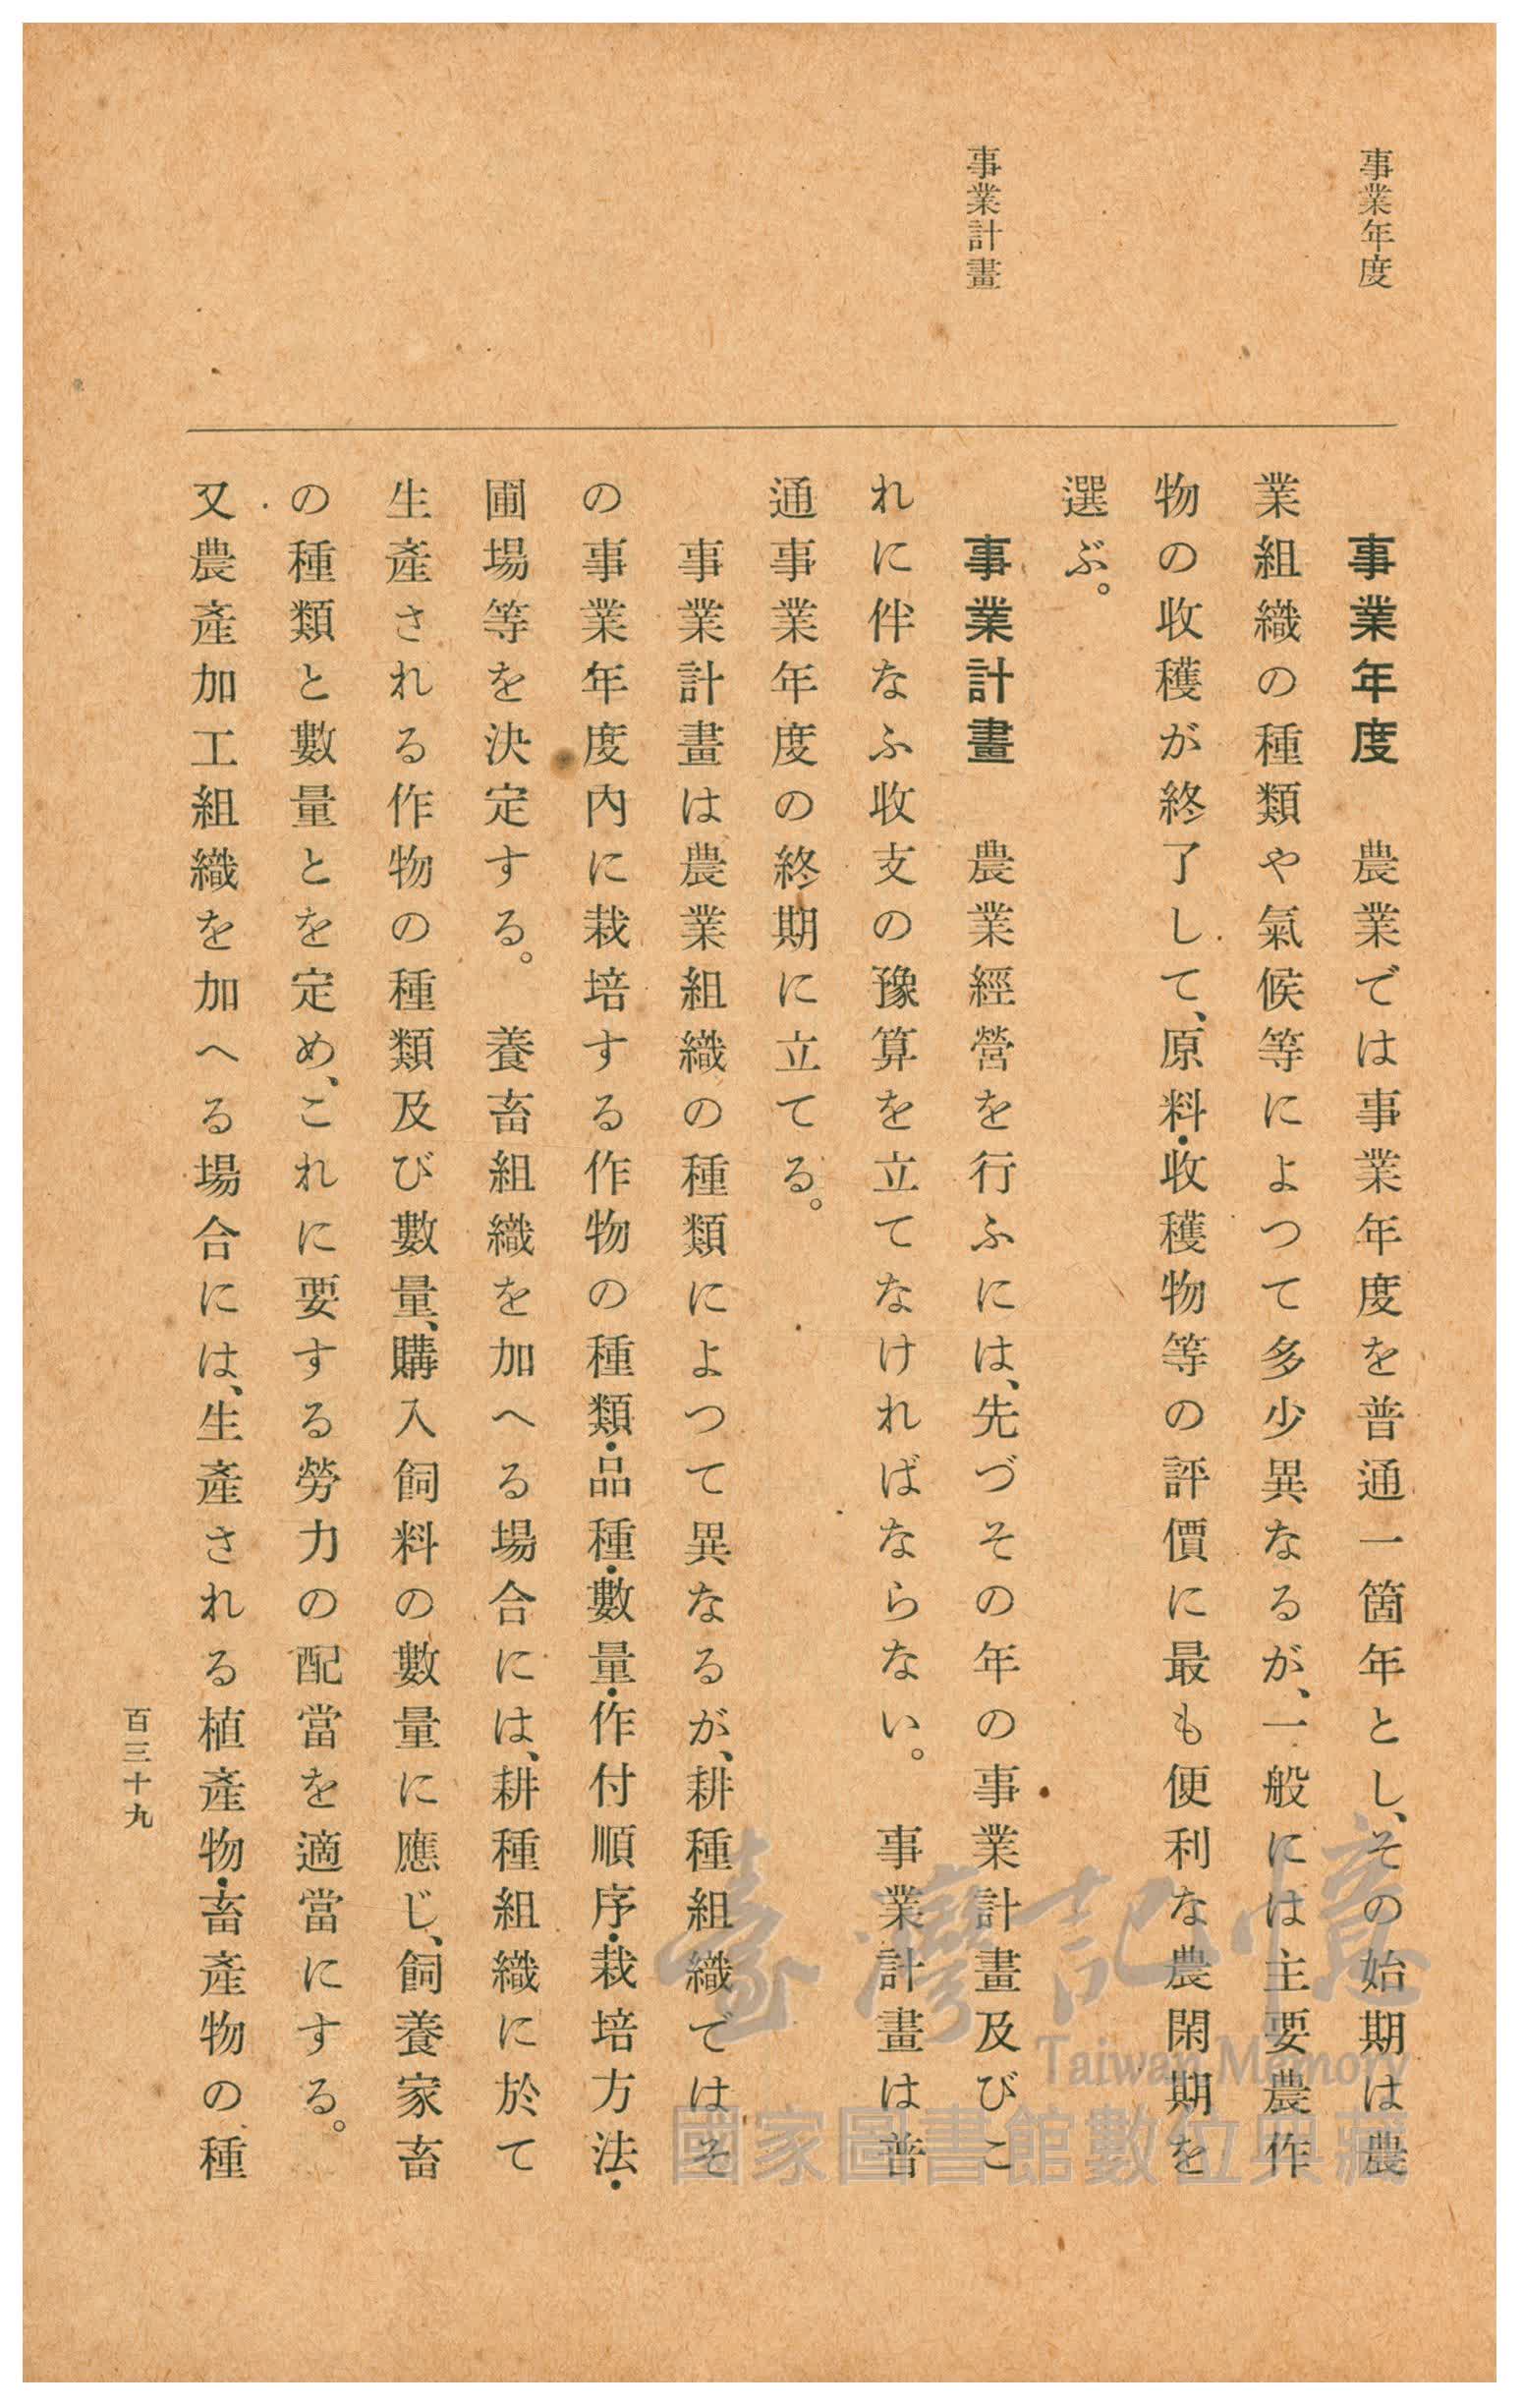 事業年度
事業計畫
事業年度　農業では事業年度を普通一箇年とし、その始期は農
業組織の種類や氣候等によつて多少異なるが、一般には主要農作
物の收穫が終了して、原料・收穫物等の評價に最も便利な農閑期を
選ぶ。
事業計畫　農業經營を行ふには、先づその年の事業計畫及びこ
れに伴なふ收支の豫算を立てなければならない。　事業計畫は普
通事業年度の終期に立てる。
事業計畫は農業組織の種類によつて異なるが、耕種組織ではそ
の事業年度內に栽培する作物の種類・品種・數量・作付順序・栽培方法・
圃場等を決定する。　養畜組織を加へる場合には、耕種組織に於て
生產される作物の種類及び數量、購入飼料の數量に應じ、飼養家畜
の種類と數量とを定め、これに要する勞力の配當を適當にする。
又農產加工組織を加へる場合には、生產される植產物・畜產物の種
百三十九
臺灣記憶
Taiwan Memory
國家圖書館數位典藏